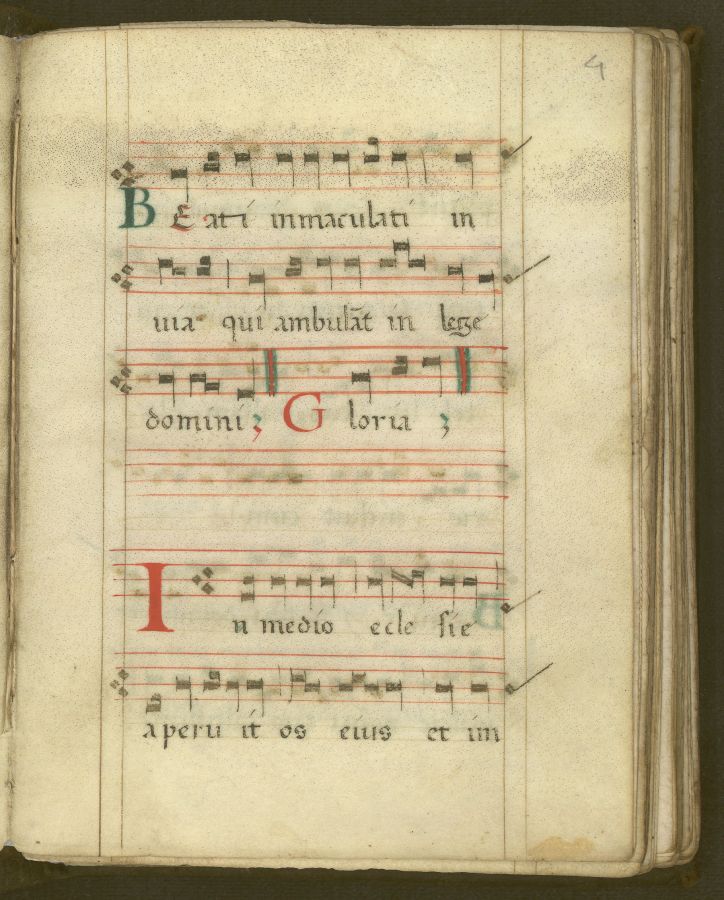 4
BEati inmaculati in
uia qui ambulāt in legge
domini; Gloria ;
In medio eclesie
aperuit os eius et im